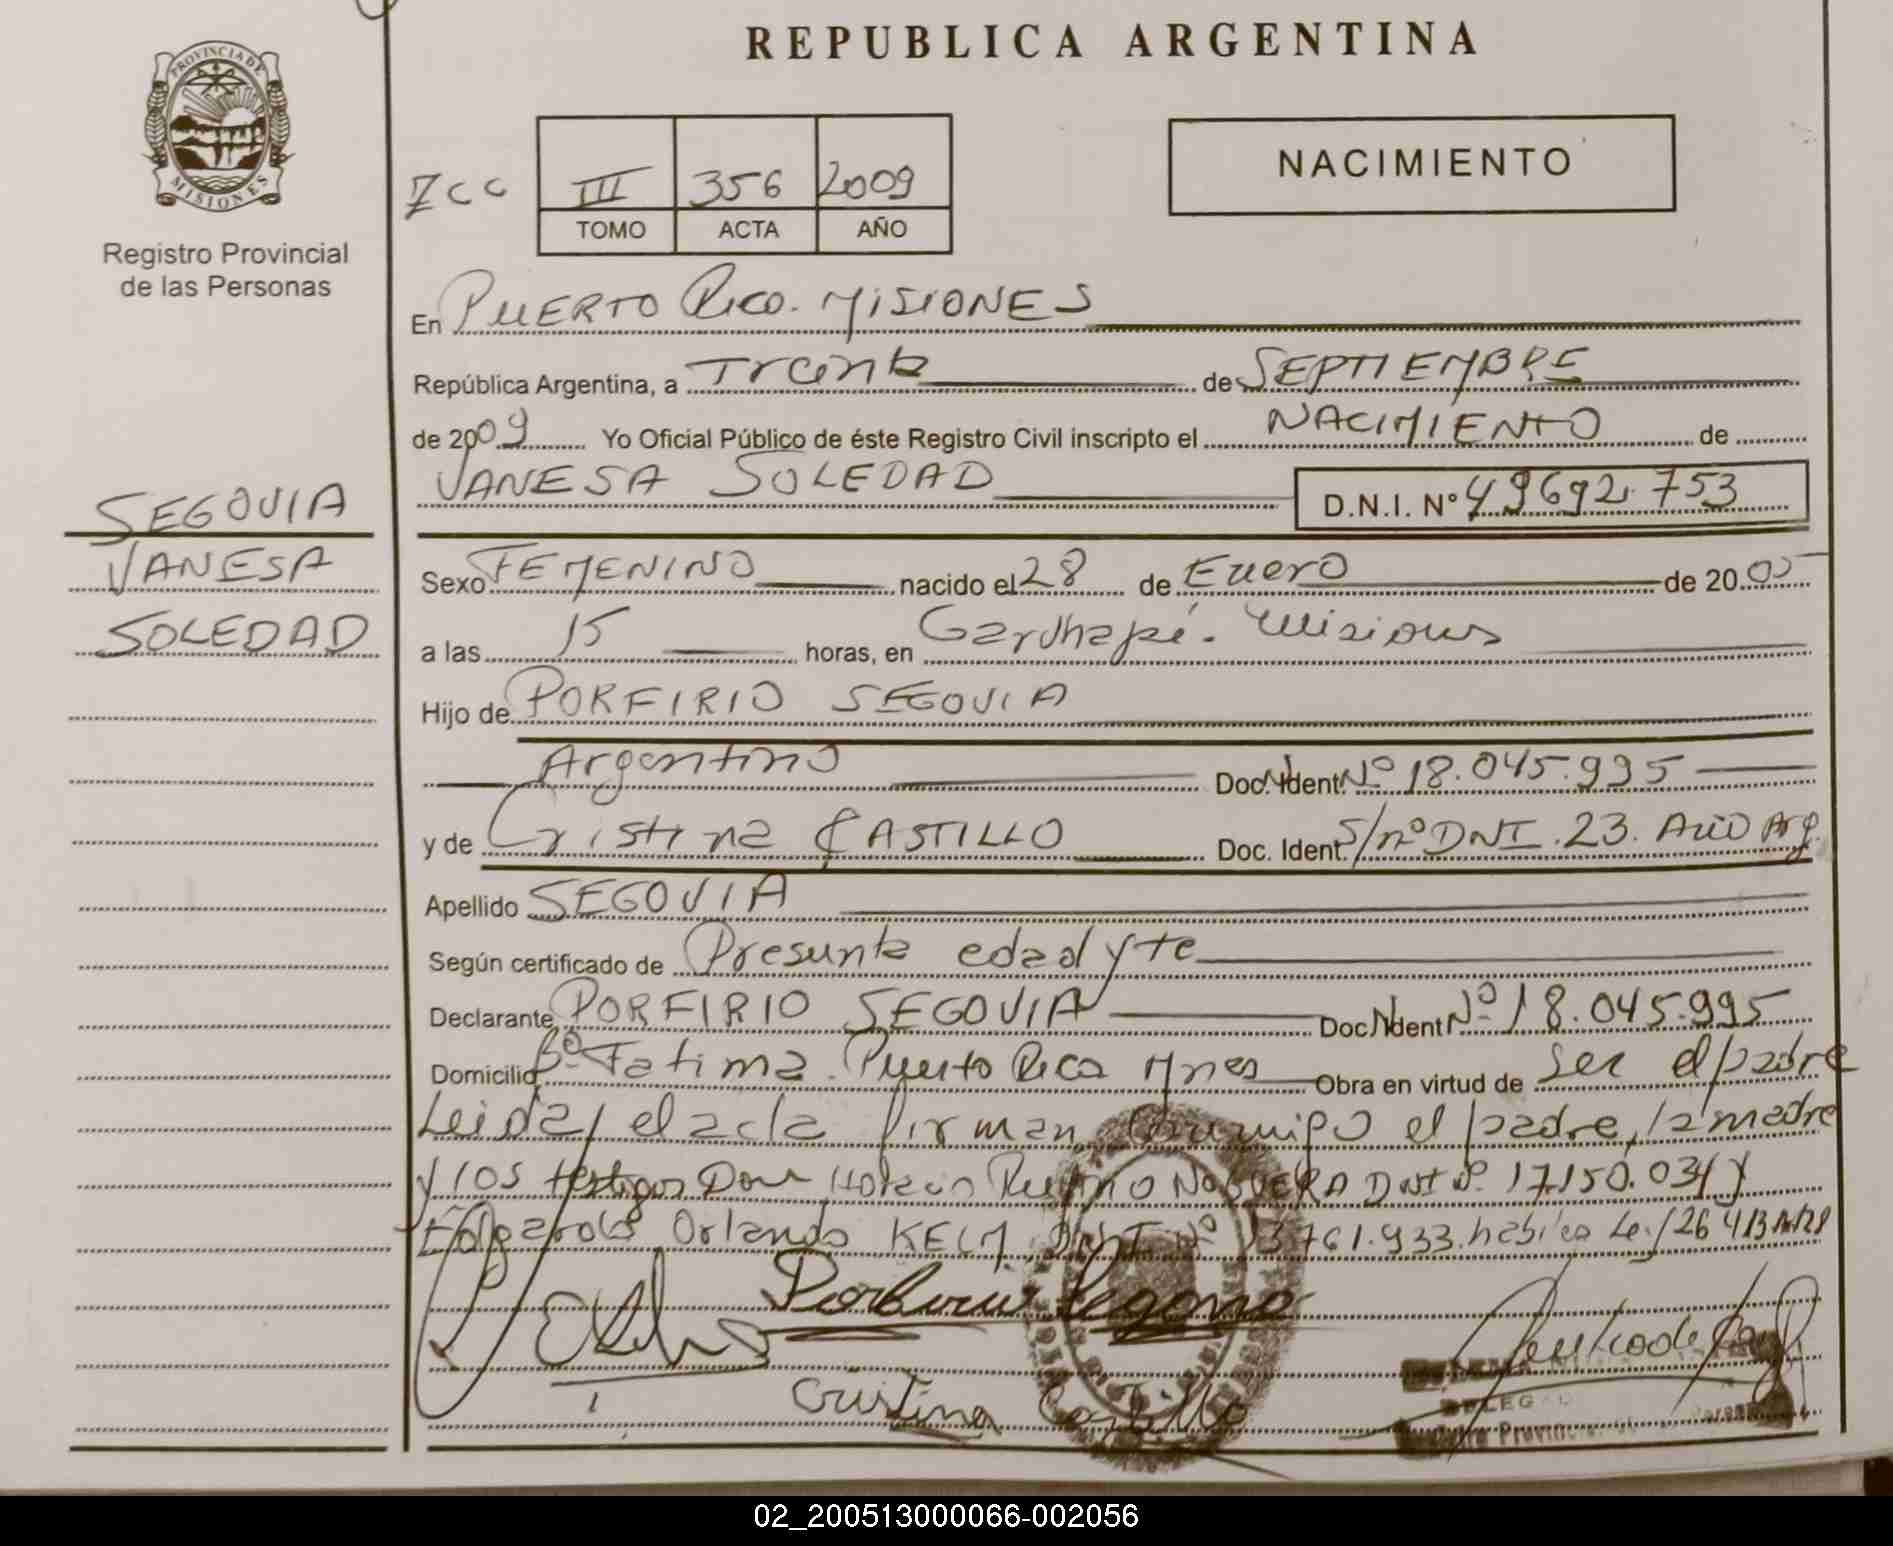 REPUBLICA ARGENTINA
PROVINCIA DE
MISIONES
Registro Provincial
de las Personas
Zcc
III 356 2009
TOMO ACTA AÑO
NACIMIENTO
En PUERTO Rico. MISIONES
República Argentina, a Treinta de SEPTIEMBRE
de 2009 Yo Oficial Público de éste Registro Civil inscripto el NACIMIENTO de
VANESA SOLEDAD D.N.I. N° 49692.753
SEGOVIA
VANESA
SOLEDAD
Sexo FEMENINO nacido el 28 de Enero de 2005
a las 15 horas, en Garuhapé. Misiones
Hijo de PORFIRIO SEGOVIA
Argentino Doc. Ident. Nº 18.045.995
y de Cristina CASTILLO Doc. Ident. S/nº DNI. 23. Año Arg.
Apellido SEGOVIA
Según certificado de Presunta edad y te
Declarante PORFIRIO SEGOVIA Doc. Ident Nº 18.045.995
Domicilio Bº Fatima. Puerto Rico Mnes Obra en virtud de Ser el padre
Leida el acta firman conmigo el padre, la madre
y los testigos Don Horacio NOGUERA DNI Nº 17.150.031 y
Edgardo Orlando KELM, DNI Nº 13.761.933. Ley 26413
Porfirio Segovia
Cristina Castillo